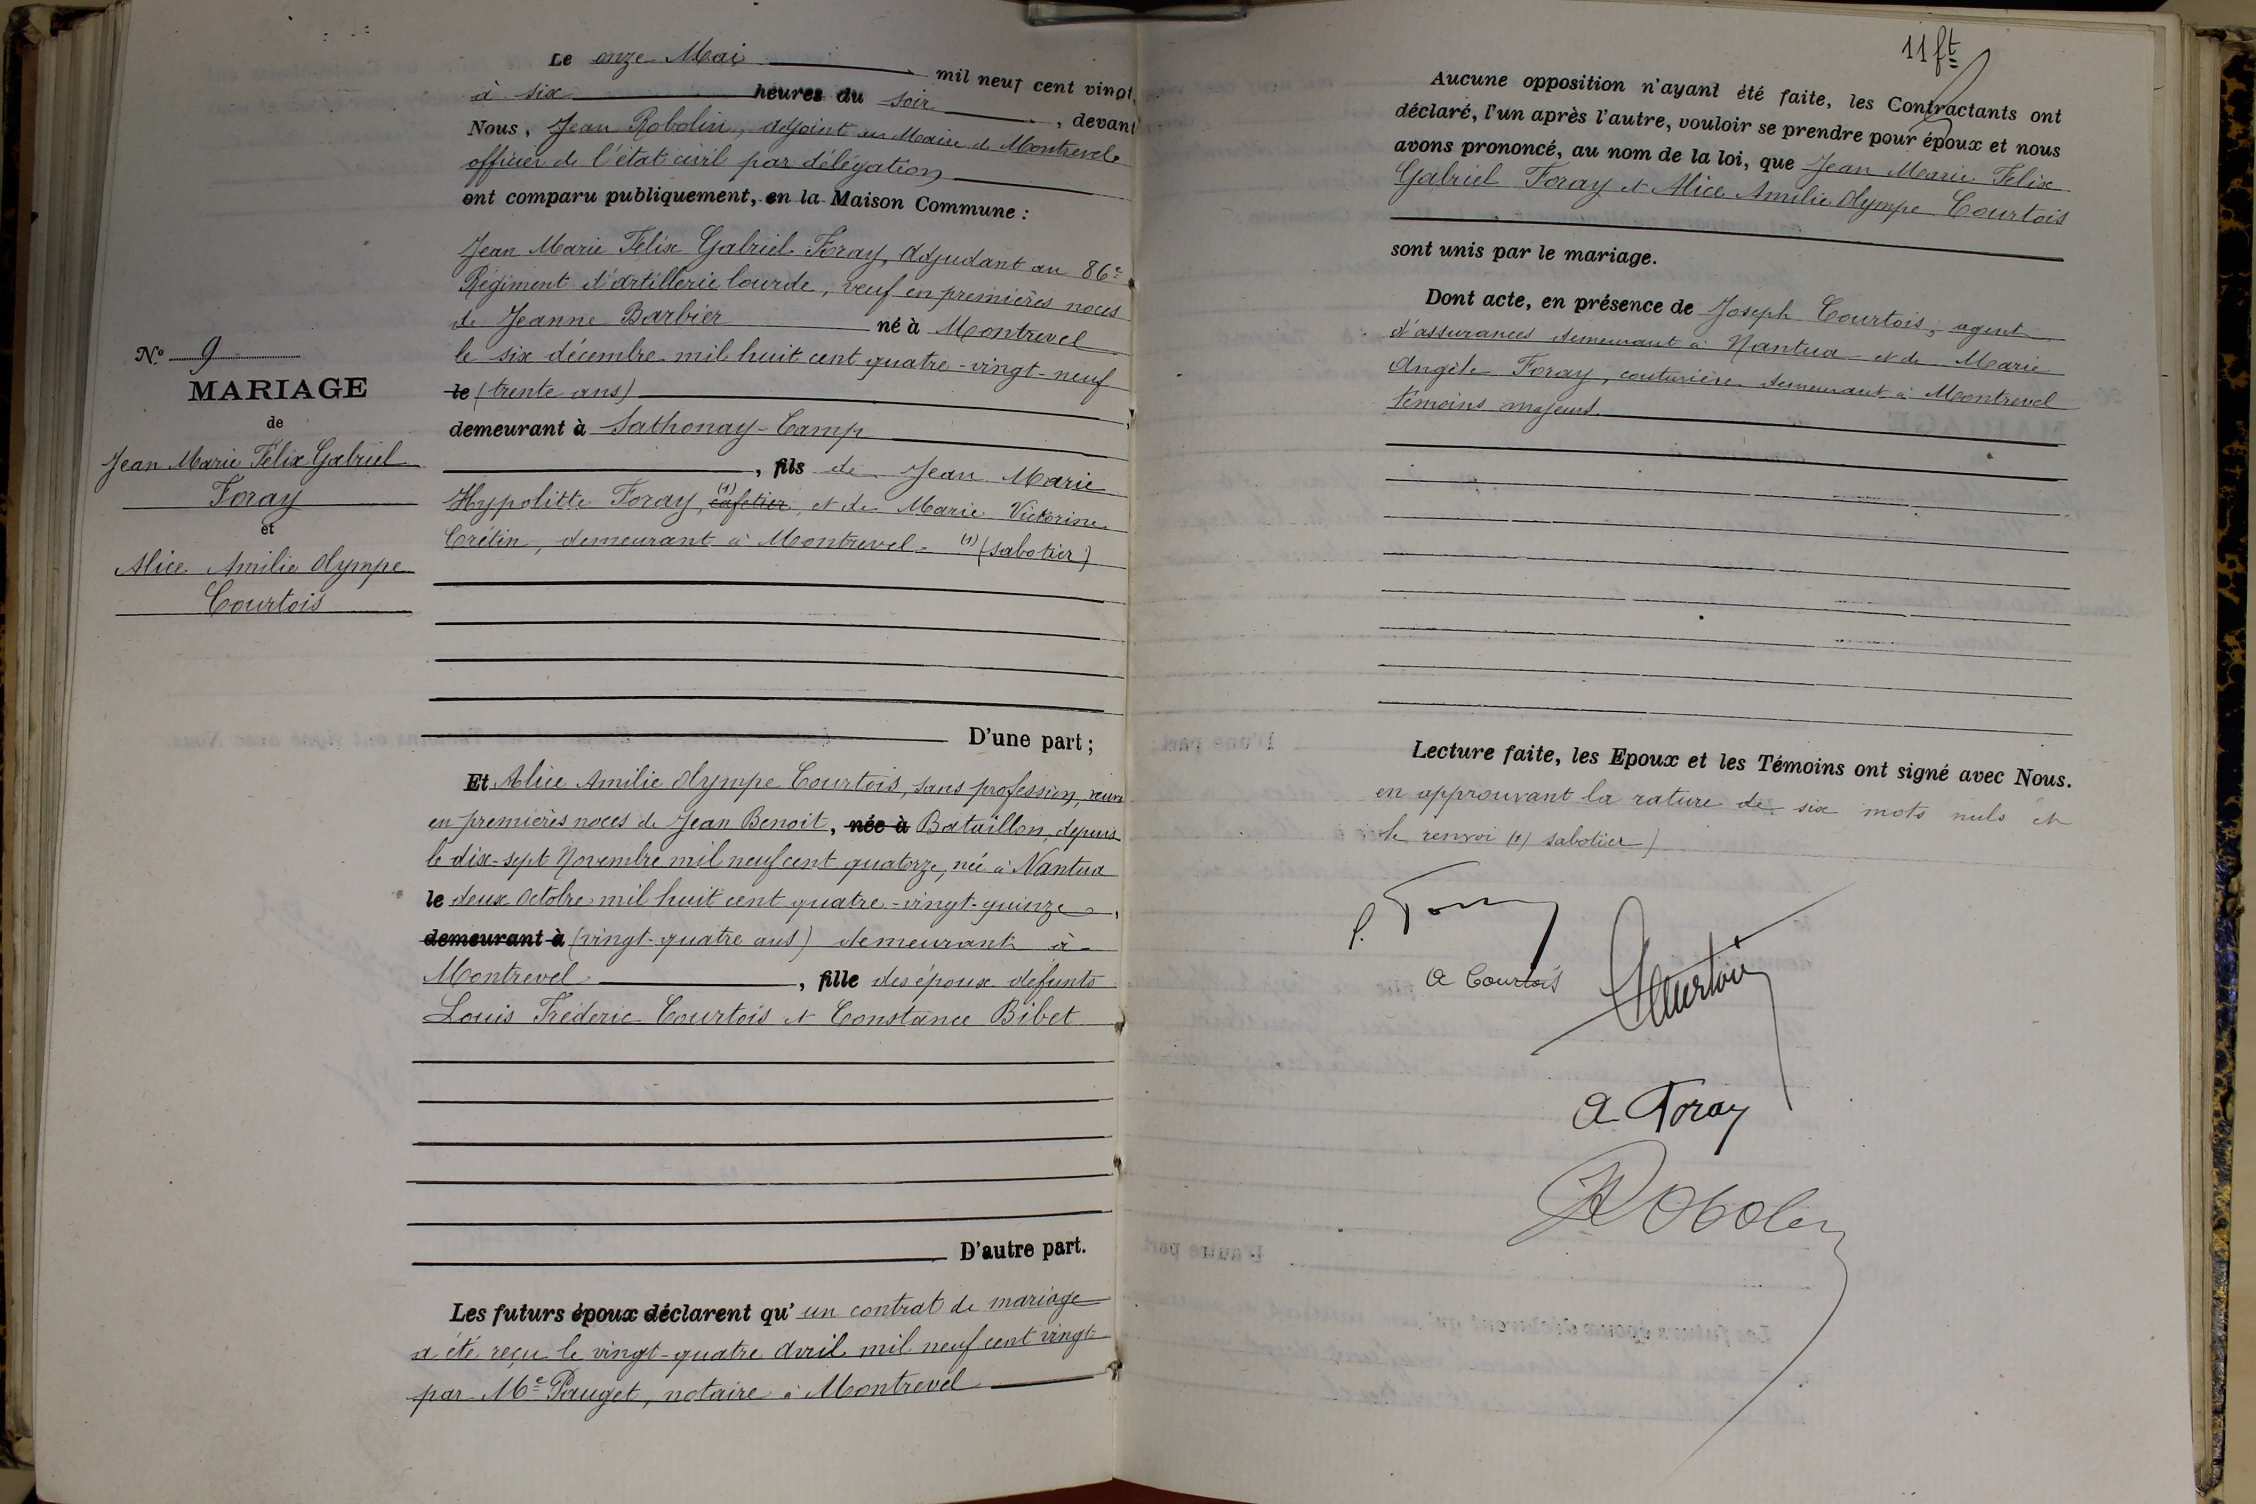 N.o 9
MARIAGE
de
Jean Marie Félix Gabriel
Foray
et
Alice Amilie Olympe
Courtois
Le onze Mai mil neuf cent vingt,
à six heures du soir, devant
Nous, Jean Robolin, adjoint au Maire de Montrevel
officier de l'état civil par délégation
ont comparu publiquement, en la Maison Commune :
Jean Marie Félix Gabriel Foray, Adjudant au 86e
Régiment d'artillerie lourde, veuf en premières noces
de Jeanne Barbier né à Montrevel
le six décembre mil huit cent quatre-vingt-neuf
le (trente ans)
demeurant à Sathonay-Camp
, fils de Jean Marie
Hypolitte Foray, (1) cafetier, et de Marie Victorine
Crétin, demeurant à Montrevel. (1) (sabotier)
D'une part ;
Et Alice Amilie Olympe Courtois, sans profession, veuve
en premières noces de Jean Benoit, née à Bataillon, depuis
le dix-sept Novembre mil neuf cent quatorze, née à Nantua
le deux Octobre mil huit cent quatre-vingt-quinze,
demeurant à (vingt-quatre ans) demeurant à
Montrevel, fille des époux défunts
Louis Fréderic Courtois et Constance Bibet
D'autre part.
Les futurs époux déclarent qu'un contrat de mariage
a été reçu le vingt-quatre Avril mil neuf cent vingt
par Me Pauget, notaire à Montrevel
11 ft
Aucune opposition n'ayant été faite, les Contractants ont
déclaré, l'un après l'autre, vouloir se prendre pour époux et nous
avons prononcé, au nom de la loi, que Jean Marie Félix
Gabriel Foray et Alice Amilie Olympe Courtois
sont unis par le mariage.
Dont acte, en présence de Joseph Courtois, agent
d'assurances demeurant à Nantua et de Marie
Angèle Foray, couturière demeurant à Montrevel
témoins majeurs.
Lecture faite, les Epoux et les Témoins ont signé avec Nous.
en approuvant la rature de six mots nuls et
le renvoi (1) sabotier)
Foray
A Courtois
Courtois
A Foray
Robolin